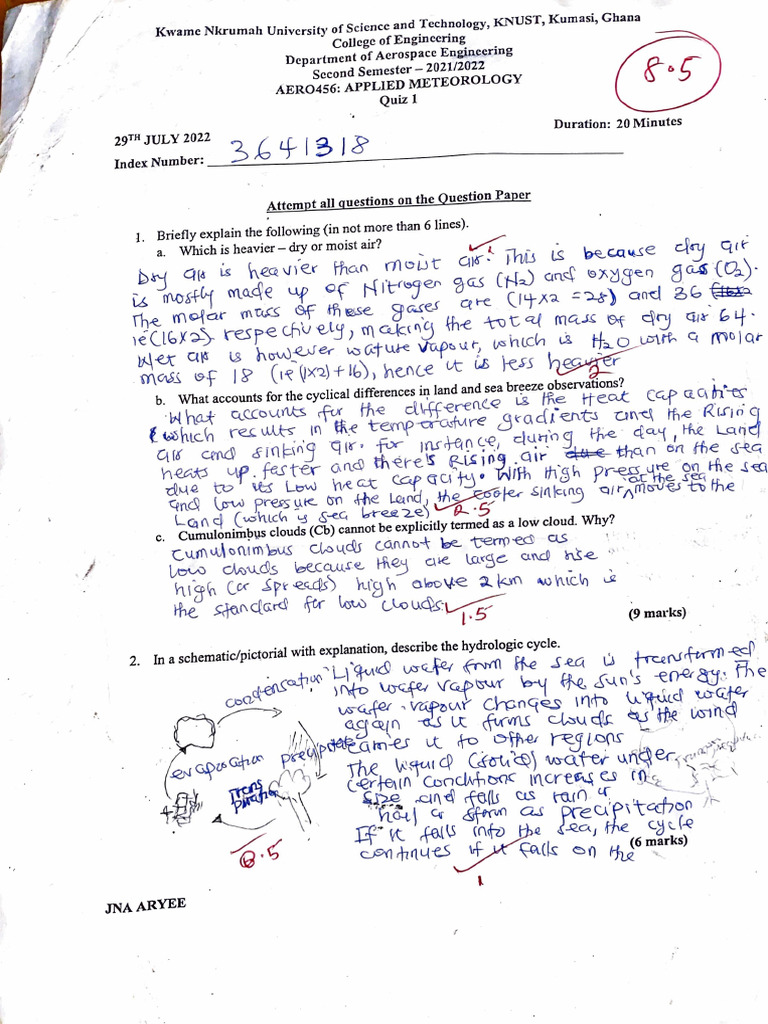 Kwame Nkrumah University of Science and Technology, KNUST, Kumasi, Ghana
College of Engineering
Department of Aerospace Engineering
Second Semester – 2021/2022
AERO456: APPLIED METEOROLOGY
Quiz 1
8.5
29TH JULY 2022
Duration: 20 Minutes
Index Number: 3641318
Attempt all questions on the Question Paper
1. Briefly explain the following (in not more than 6 lines).
a. Which is heavier – dry or moist air?
Dry air is heavier than moist air. This is because dry air
is mostly made up of Nitrogen gas (N2) and oxygen gas (O2).
The molar mass of these gases are (14x2 = 28) and 36
ie (16x2) respectively, making the total mass of dry air 64.
Wet air is however wature vapour, which is H2O with a molar
mass of 18 (ie (1x2) + 16), hence it is less heavier
2
b. What accounts for the cyclical differences in land and sea breeze observations?
What accounts for the difference is the Heat capacities
which results in the temprature gradients and the Rising
air and sinking air. For instance, during the day, the Land
heats up faster and there's Rising air than on the sea
due to its Low heat capacity. With High pressure on the sea
at the sea
and low pressure on the Land, the cooler sinking air moves to the
Land (which is sea breeze)
2.5
c. Cumulonimbus clouds (Cb) cannot be explicitly termed as a low cloud. Why?
Cumulonimbus clouds cannot be termed as
low clouds because they are large and rise
high (or spreads) high above 2 km which is
the standard for low clouds.
1.5
(9 marks)
2. In a schematic/pictorial with explanation, describe the hydrologic cycle.
condensation
evaporation
precipitate
Trans
piration
Liquid water from the sea is transformed
into water vapour by the sun's energy. The
water vapour changes into liquid water
again as it forms clouds as the wind
carries it to other regions
The liquid (solid) water under
certain conditions increases in
size and falls as rain or
hail or storm as precipitation
If it falls into the sea, the cycle
continues if it falls on the
(6 marks)
1
JNA ARYEE